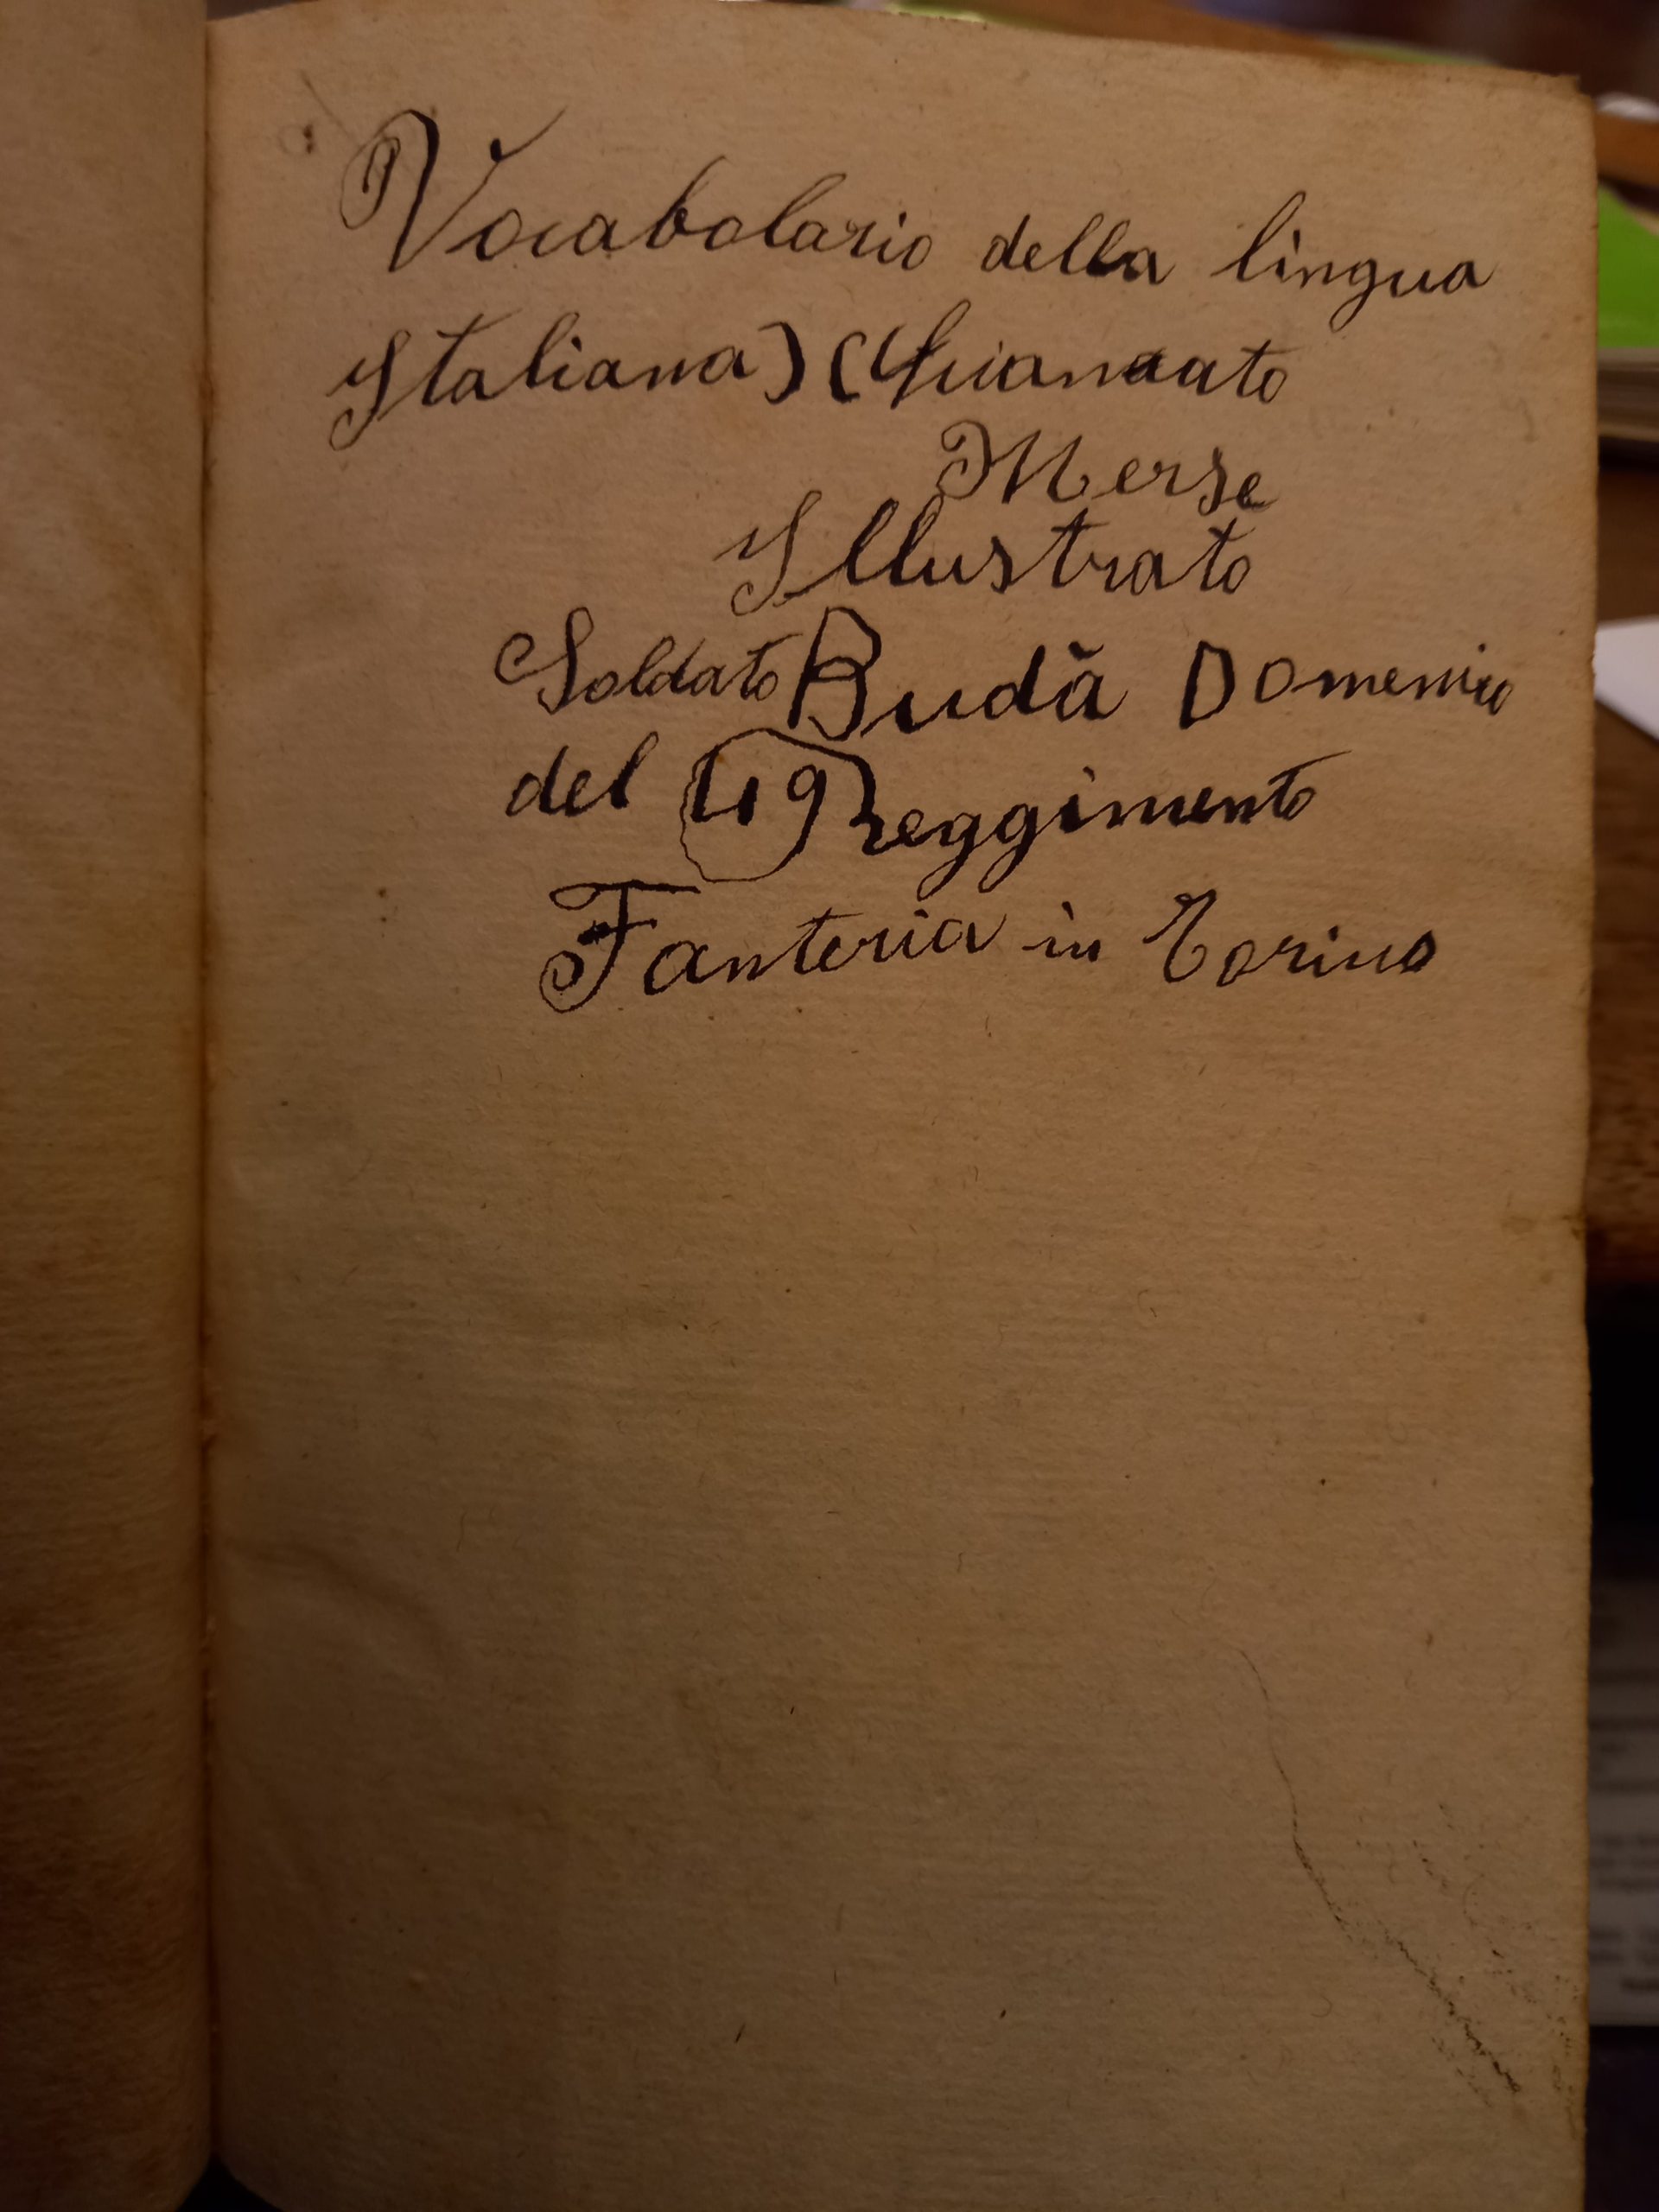 Vocabolario della lingua
Italiana) (
Merse
Illustrato
Soldato Budà Domenico
del 49 Reggimento
Fanteria in Torino